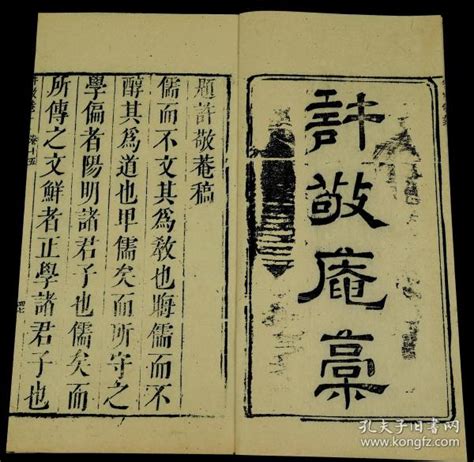 許敬庵稾
題許敬菴稿
儒而不文其爲敎也晦儒而不
醇其爲道也卑儒矣而所守之
學偏者陽明諸君子也儒矣而
所傳之文鮮者正學諸君子也
卷十五
孔夫子旧书网
www.kongfz.com